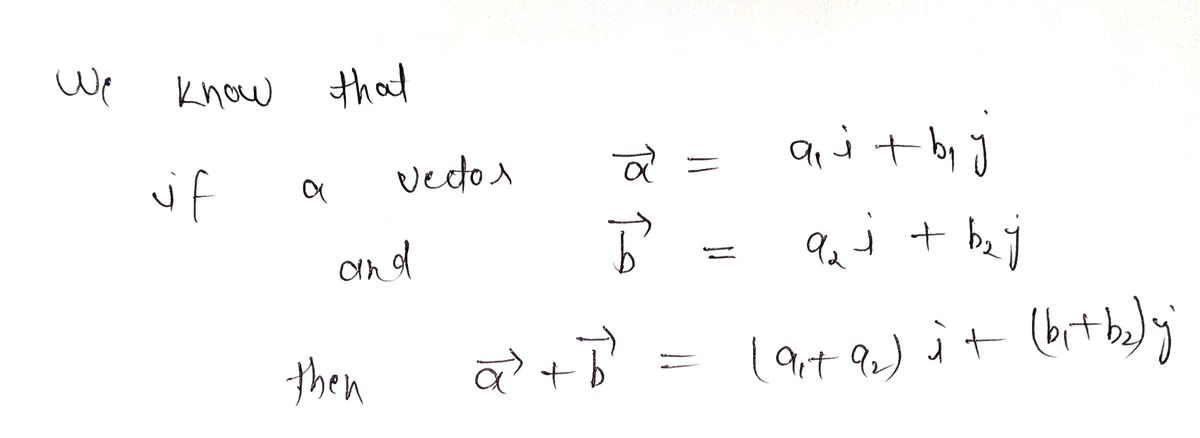 We know that
if a vector $\vec{a} = a_1 i + b_1 j$
and $\vec{b} = a_2 i + b_2 j$
then $\vec{a} + \vec{b} = (a_1 + a_2) i + (b_1 + b_2) j$